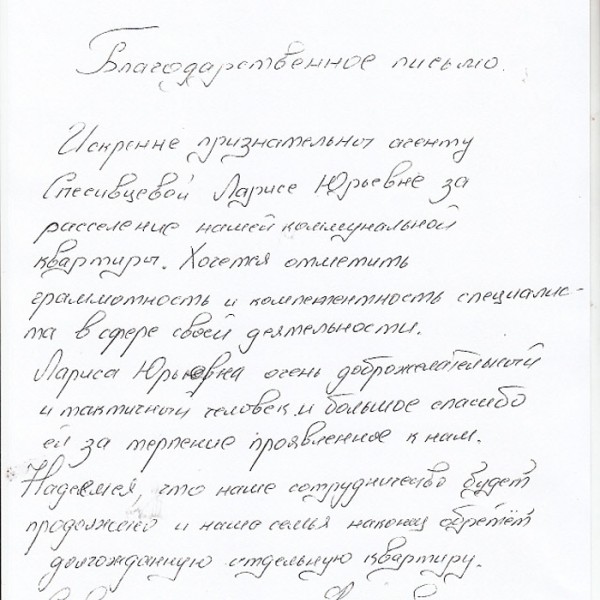 Благодарственное письмо.
Искренне признательны агенту
Спесивцевой Ларисе Юрьевне за
расселение нашей коммунальной
квартиры. Хочется отметить
граммотность и компетентность специалис-
та в сфере своей деятельности.
Лариса Юрьевна очень доброжелательный
и тактичный человек и большое спасибо
ей за терпение проявленное к нам.
Надеемся, что наше сотрудничество будет
и наша семья наконец обретёт
долгожданную отдельную квартиру.